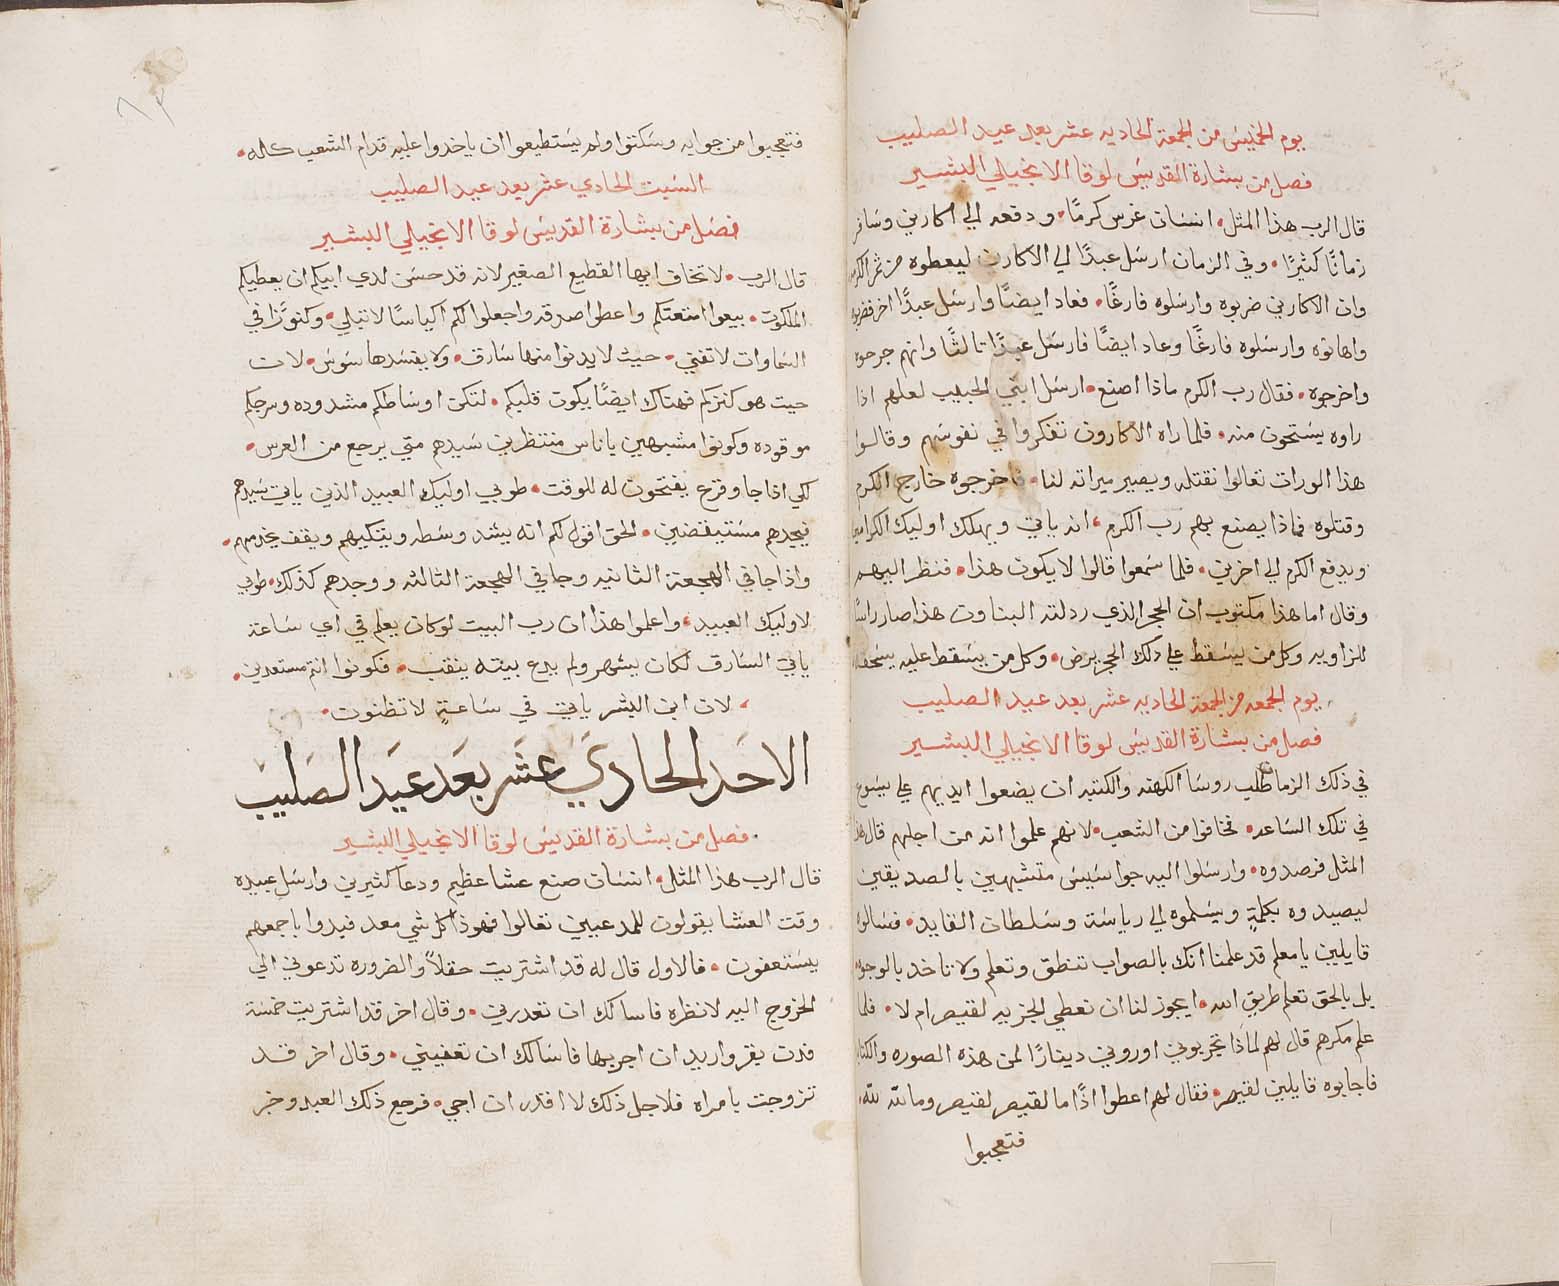 يوم الخميس من الجمعة الحاديه عشر بعد عيد الصليب
فصل من بشارة القديس لوقا الانجيلي البشير
قال الرب هذا المثل• انسان غرس كرمًا• ودفعه الي اكارين وسافر
زمانًا كثيرًا• وفي الزمان ارسل عبدًا الي الاكارين ليعطوه من ثمر الكرم
وان الاكارين ضربوه وارسلوه فارغًا• فعاد ايضًا وارسل عبدًا اخر فضربوه
واهانوه وارسلوه فارغًا وعاد ايضًا فارسل عبدًا ثالثًا وانهم جرحوه
واخرجوه• فقال رب الكرم ماذا اصنع• ارسل ابني الحبيب لعلهم اذا
راوه يستحون منه• فلما راه الاكارون تفكروا في نفوسهم وقالوا
هذا الوراث تعالوا نقتله ويصير ميراثه لنا• فاخرجوه خارج الكرم
وقتلوه فماذا يصنع بهم رب الكرم، انه ياتي ويهلك اوليك الكرامين
ويدفع الكرم الي اخرين• فلما سمعوا قالوا لا يكون هذا• فنظر اليهم
وقال اما هذا مكتوب ان الحجر الذي ردلته البناون هذا صار راسًا
للزاويه وكل من يسقط علي ذلك الحجر يرض• وكل من يسقط عليه يسحقه
يوم الجمعه من الجمعة الحاديه عشر بعد عيد الصليب
فصل من بشارة القديس لوقا الانجيلي البشير
في ذلك الزمان طلب روسا الكهنه والكتبه ان يضعوا ايديهم علي يسوع
في تلك الساعه• فخافوا من الشعب• لانهم علموا انه من اجلهم قال هذا
المثل فرصدوه• وارسلوا اليه جواسيس متشبهين بالصديقين
ليصيدوه بكلمةٍ ويسلموه الي رياسة وسلطان القايد• فسالوه
قايلين يا معلم قد علمنا انك بالصواب تنطق وتعلم ولا تاخد بالوجوه
بل بالحق تعلم طريق الله• ايجوز لنا ان نعطي الجزيه لقيصر ام لا• فلما
علم مكرهم قال لهم لمَاذا تجربوني اوروني دينارًا لمن هذه الصوره والكتابه
فاجابوه قايلين لقيصر• فقال لهم اعطوا اذًا ما لقيصر لقيصر وما لله لله•
فتعجبوا
فتعجبوا من جوابه وسكتوا ولم يستطيعوا ان ياخدوا عليه قدام الشعب كله•
السبت الحادي عشر بعد عيد الصليب
فصل من بشارة القديس لوقا الانجيلي البشير
قال الرب• لا تخاف ايها القطيع الصغير لانه قد حسن لدي ابيكم ان يعطيكم
الملكوت• بيعوا امتعتكم واعطوا صدقه واجعلوا لكم اكياسًا لا تبلي• وكنوزًا في
السماوات لا تفني• حيث لا يدنوا منها سارق• ولا يفسدها سوس• لان
حيت هو كنزكم فهناك ايضًا يكون قلبكم• لتكن اوساطكم مشدوده وسرجكم
موقوده وكونوا مشبهين باناس منتظرين سيدهم متي يرجع من العرس•
لكي اذا جا وقرع يفتحون له للوقت• طوبي اوليك العبيد الذين ياتي سيدهم
فيجدهم مستيقضين• الحق اقول لكم انه يشد وسطه ويتكيهم ويقف يخدمهم•
واذا جا في الهجعة الثانيه وجا في الهجعة الثالثه ووجدهم كذلك• طوبي
لاوليك العبيد، واعلموا هذا ان رب البيت لو كان يعلم في اي ساعة
ياتي السارق لكان يسهر ولم يدع بيته ينقب• فكونوا انتم مستعدين•
، لان ابن البشر ياتي في ساعةٍ لا تظنون•
الاحد الحادي عشر بعد عيد الصليب
فصل من بشارة القديس لوقا الانجيلي البشير
قال الرب هذا المثل• انسان صنع عشا عظيم ودعا كثيرين وارسل عبيده
وقت العشا يقولون للمدعيين تعالوا فهوذا كل شي معد فبدوا باجمعهم
يستعفون• فالاول قال له قد اشتريت حقلاً والضروره تدعوني الي
الخروج اليه لانظره فاسالك ان تعدرني• وقال اخر قد اشتريت خمسة
فدن بقر واريد ان اجربها فاسالك ان تعفيني• وقال اخر قد
تزوجت بامراه فلاجل ذلك لا اقدر ان اجي• فرجع ذلك العبد وخبر